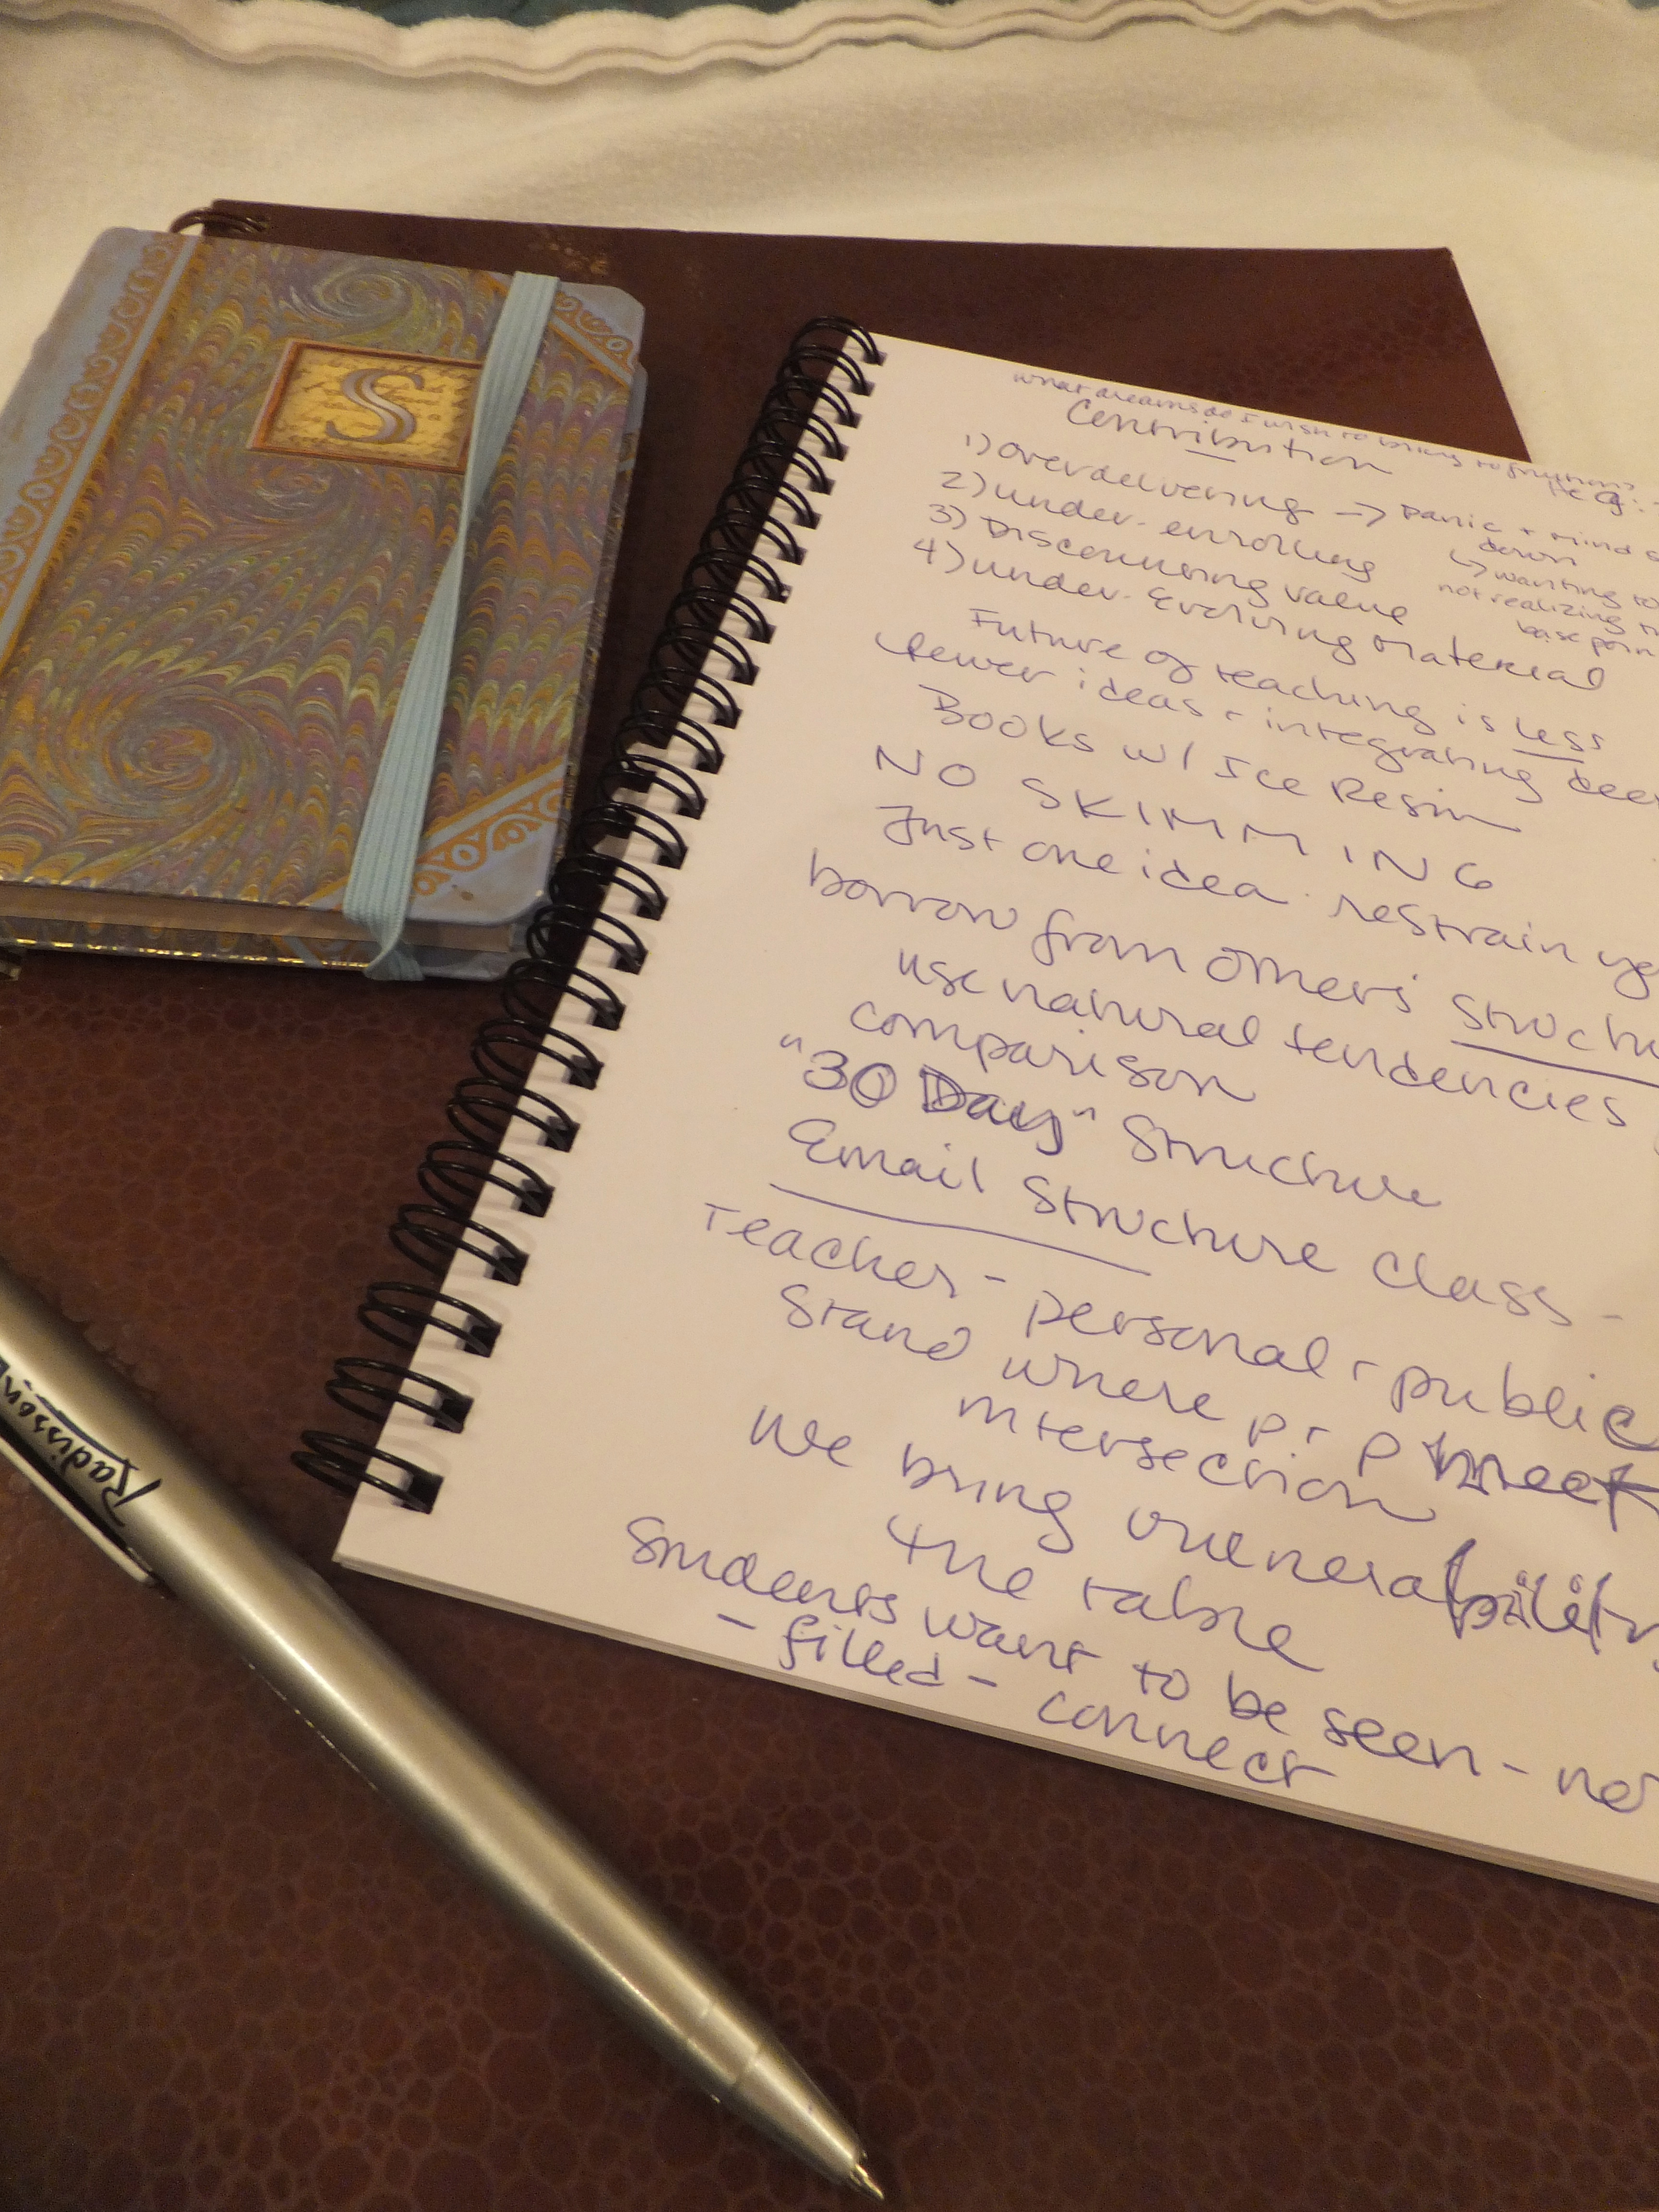 S
what dreams do I wish to bring to fruition?
Contribution
1) overdelivering → Panic + mind
down
2) under-enrolling
↳ wanting to
3) Discounting value
not realizing
base
4) under-Evolving material
Future of teaching is less
fewer ideas + integrating
Books w/ Ice Resin
NO SKIMMING
Just one idea. restrain
borrow from others'
use natural tendencies
comparison
"30 Day" Structure
Email Structure class -
Teacher - personal + public
Stand where P + P meet
intersection
We bring vulnerability
the table
Students want to be seen - not
- filled - connect
Radisson